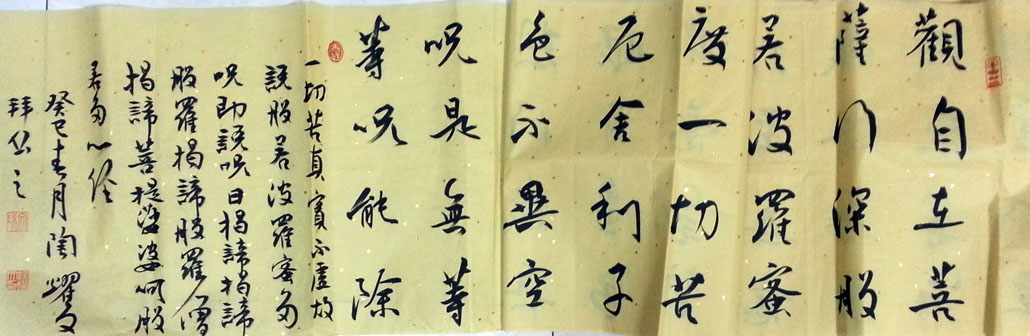 觀自在菩
薩行深般
若波羅蜜
度一切苦
厄舍利子
色不異空
呪是無等
等呪能除
一切苦真實不虛故
說般若波羅蜜多
呪即說呪曰揭諦揭諦
般羅揭諦般羅僧
揭諦菩提娑婆呵般
若多心經
癸巳春月陶耀文
拜書之